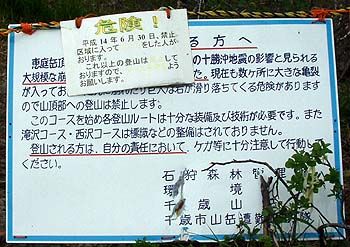 危険！
平成14年6月30日、禁止
区域に入って
をした人が
おります。
これ以上の登山は
しよう
おりますので、
お願いします。
る方へ
恵庭岳頂
の十勝沖地震の影響と見られる
大規模な崩
た。現在も数ヶ所に大きな亀裂
が入ってお
巨大な石が滑り落ちてくる危険があります
ので山頂部への登山は禁止します。
このコースを始め各登山ルートは十分な装備及び技術が必要です。また
滝沢コース・西沢コースは標識などの整備はされておりません。
登山される方は、自分の責任において、ケガ等に十分注意して行動し
ください。
石狩森林管理
環境
千歳
千歳市山岳遭難